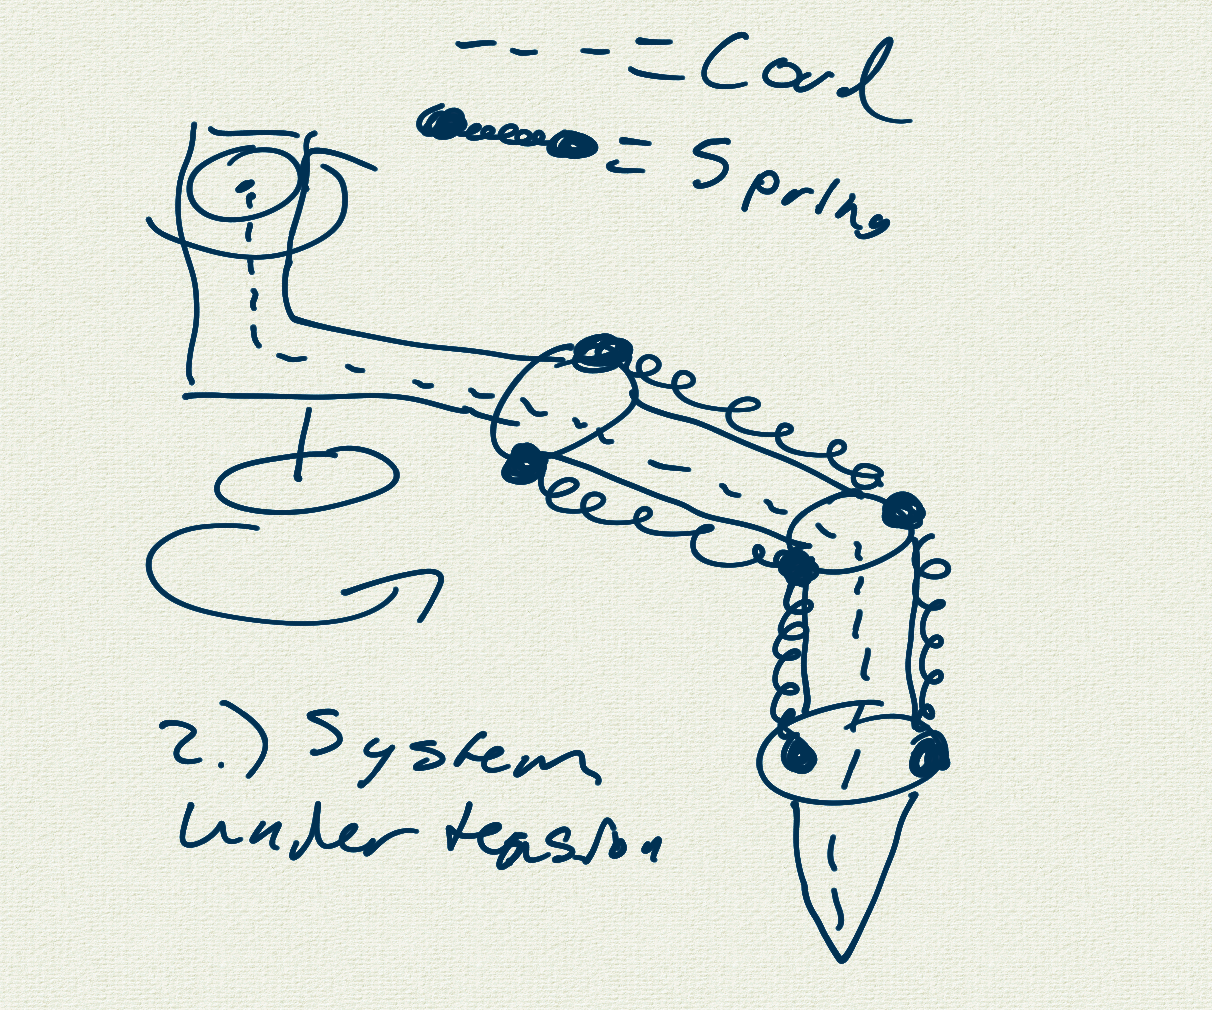 ---- = Cord
= Spring
2.) System
under tension